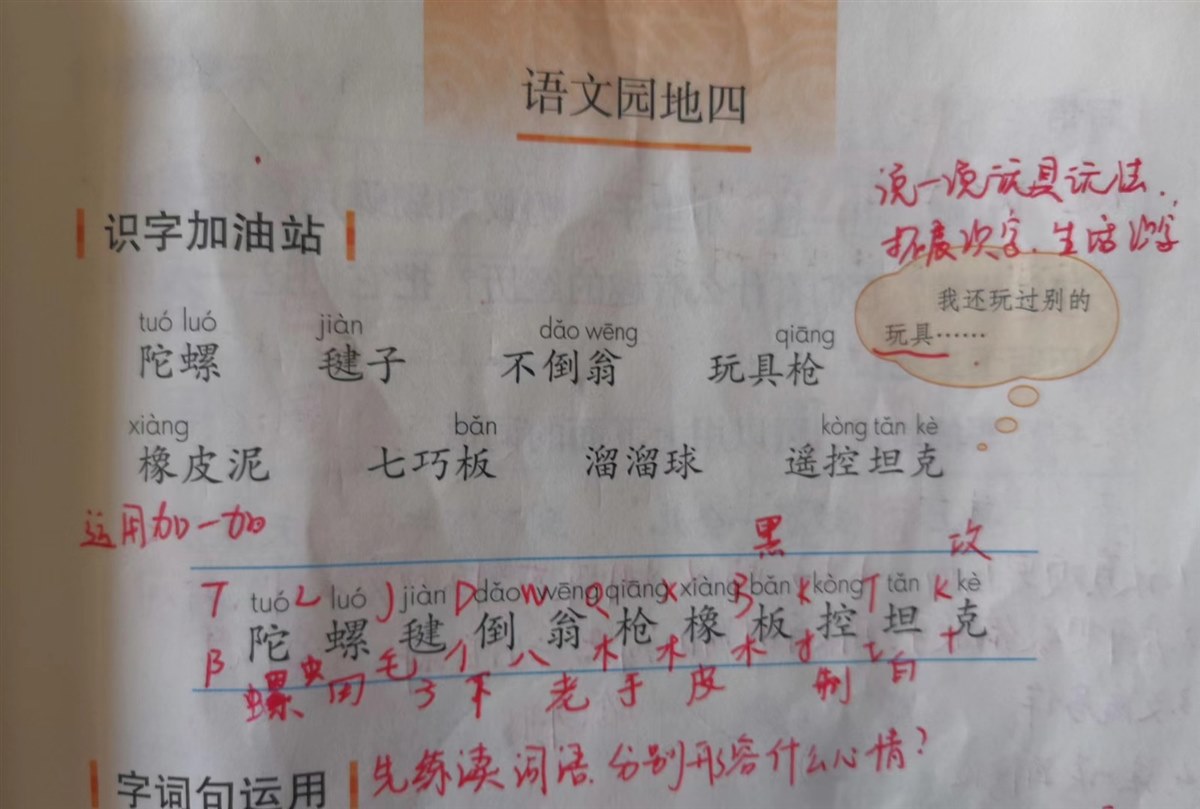 语文园地四
说一说玩具玩法.
拓展识字.生活识字
识字加油站
我还玩过别的
玩具……
tuó luó jiàn dǎo wēng qiāng
陀螺 毽子 不倒翁 玩具枪
xiàng bǎn kòng tǎn kè
橡皮泥 七巧板 溜溜球 遥控坦克
运用加一加
黑 攻
T tuó L luó J jiàn D dǎo W wēng Q qiāng X xiàng B bǎn K kòng T tǎn K kè
陀 螺 毽 倒 翁 枪 橡 板 控 坦 克
阝 虫 毛 亻 八 木 木 木 扌 土 十
螺 田 子 下 老 手 皮 制 白
字词句运用
先练读词语.分别形容什么心情?